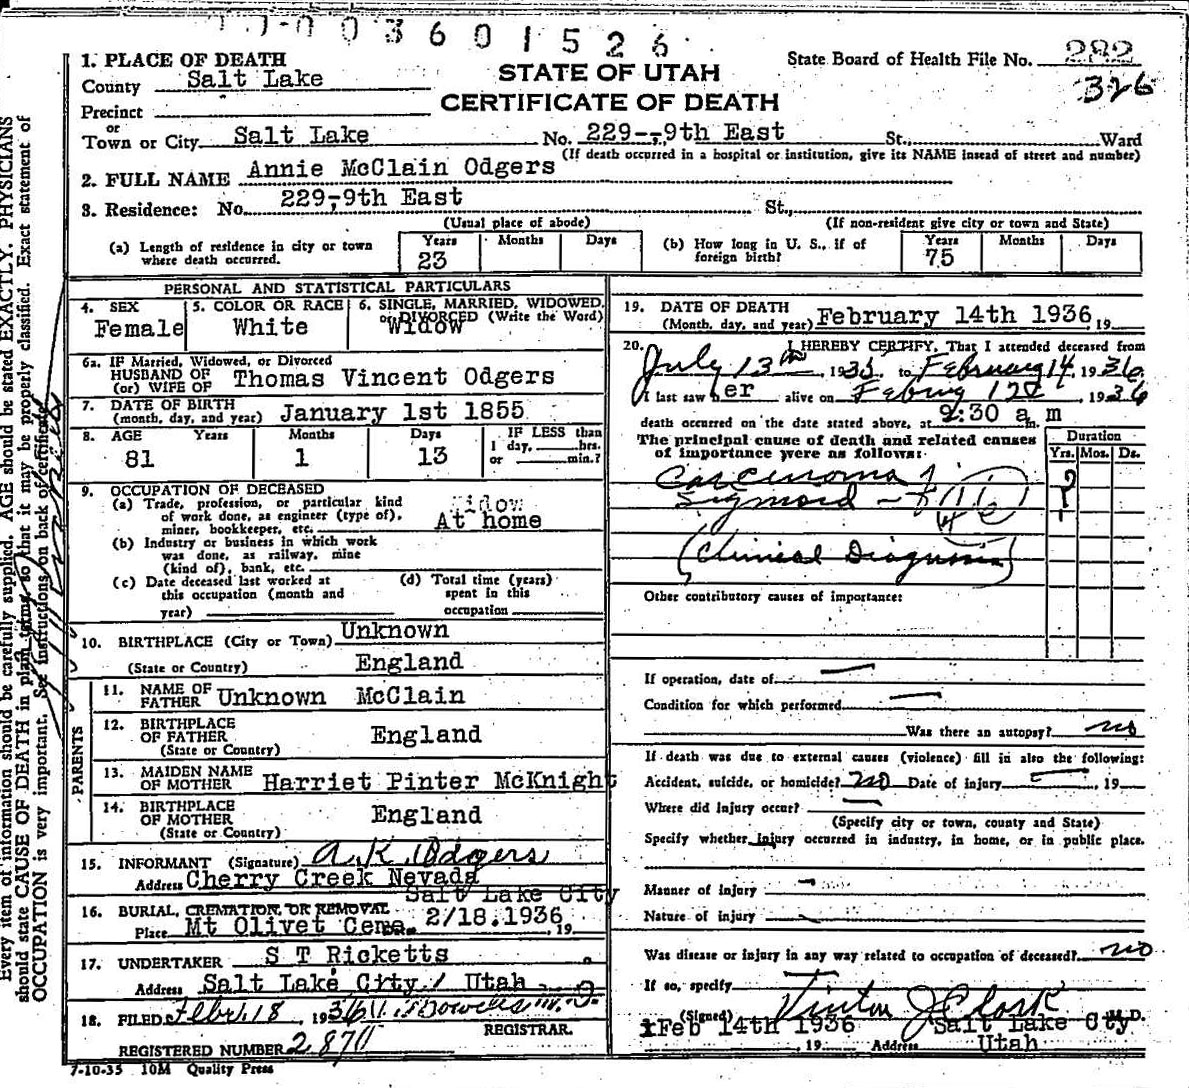 0 0 3 6 0 1 5 2 6
1. PLACE OF DEATH
County Salt Lake
Precinct
or
Town or City Salt Lake
STATE OF UTAH
CERTIFICATE OF DEATH
State Board of Health File No. 282
326
No. 229-,9th East St., Ward
(If death occurred in a hospital or institution, give its NAME instead of street and number)
2. FULL NAME Annie McClain Odgers
3. Residence: No. 229,9th East St.,
(Usual place of abode) (If non-resident give city or town and State)
(a) Length of residence in city or town where death occurred. Years 23 Months Days
(b) How long in U. S., if of foreign birth? Years 75 Months Days
PERSONAL AND STATISTICAL PARTICULARS
4. SEX Female
5. COLOR OR RACE White
6. SINGLE, MARRIED, WIDOWED, or DIVORCED (Write the Word) Widow
6a. IF Married, Widowed, or Divorced
HUSBAND OF
(or) WIFE OF Thomas Vincent Odgers
7. DATE OF BIRTH
(month, day, and year) January 1st 1855
8. AGE Years 81 Months 1 Days 13 IF LESS than 1 day, hrs. or min.?
9. OCCUPATION OF DECEASED
(a) Trade, profession, or particular kind
of work done, as engineer (type of),
miner, bookkeeper, etc. Widow
At home
(b) Industry or business in which work
was done, as railway, mine
(kind of), bank, etc.
(c) Date deceased last worked at
this occupation (month and
year)
(d) Total time (years)
spent in this
occupation
10. BIRTHPLACE (City or Town) Unknown
(State or Country) England
PARENTS
11. NAME OF
FATHER Unknown McClain
12. BIRTHPLACE
OF FATHER England
(State or Country)
13. MAIDEN NAME
OF MOTHER Harriet Pinter McKnight
14. BIRTHPLACE
OF MOTHER England
(State or Country)
15. INFORMANT (Signature) A. K. Odgers
Address Cherry Creek Nevada
Salt Lake City
16. BURIAL, CREMATION, OR REMOVAL
Place Mt Olivet Ceme. 2/18.1936, 19
17. UNDERTAKER S T Ricketts
Address Salt Lake City, Utah
18. FILED Feb. 18, 1936
REGISTRAR.
REGISTERED NUMBER
7-10-35 10M Quality Press
19. DATE OF DEATH
(Month, day, and year) February 14th 1936, 19
20. I HEREBY CERTIFY, That I attended deceased from
July 13th, 1935, to February 14, 1936
I last saw her alive on 1936
death occurred on the date stated above, at 2:30 a m m.
The principal cause of death and related causes
of importance were as follows:
Duration
Yrs. Mos. Ds.
Carcinoma of
Sigmoid
?
(Clinical Diagnosis)
Other contributory causes of importance:
If operation, date of
Condition for which performed
Was there an autopsy? no
If death was due to external causes (violence) fill in also the following:
Accident, suicide, or homicide? no Date of injury , 19
Where did injury occur?
(Specify city or town, county and State)
Specify whether injury occurred in industry, in home, or in public place.
Manner of injury
Nature of injury
Was disease or injury in any way related to occupation of deceased? no
If so, specify
(Signed) Vinton J Clark M.D.
Feb 14th 1936 Salt Lake City
, 19 Address Utah
Every item of information should be carefully supplied. AGE should be stated EXACTLY. PHYSICIANS
should state CAUSE OF DEATH in plain terms, so that it may be properly classified. Exact statement of
OCCUPATION is very important. See instructions on back of certificate.